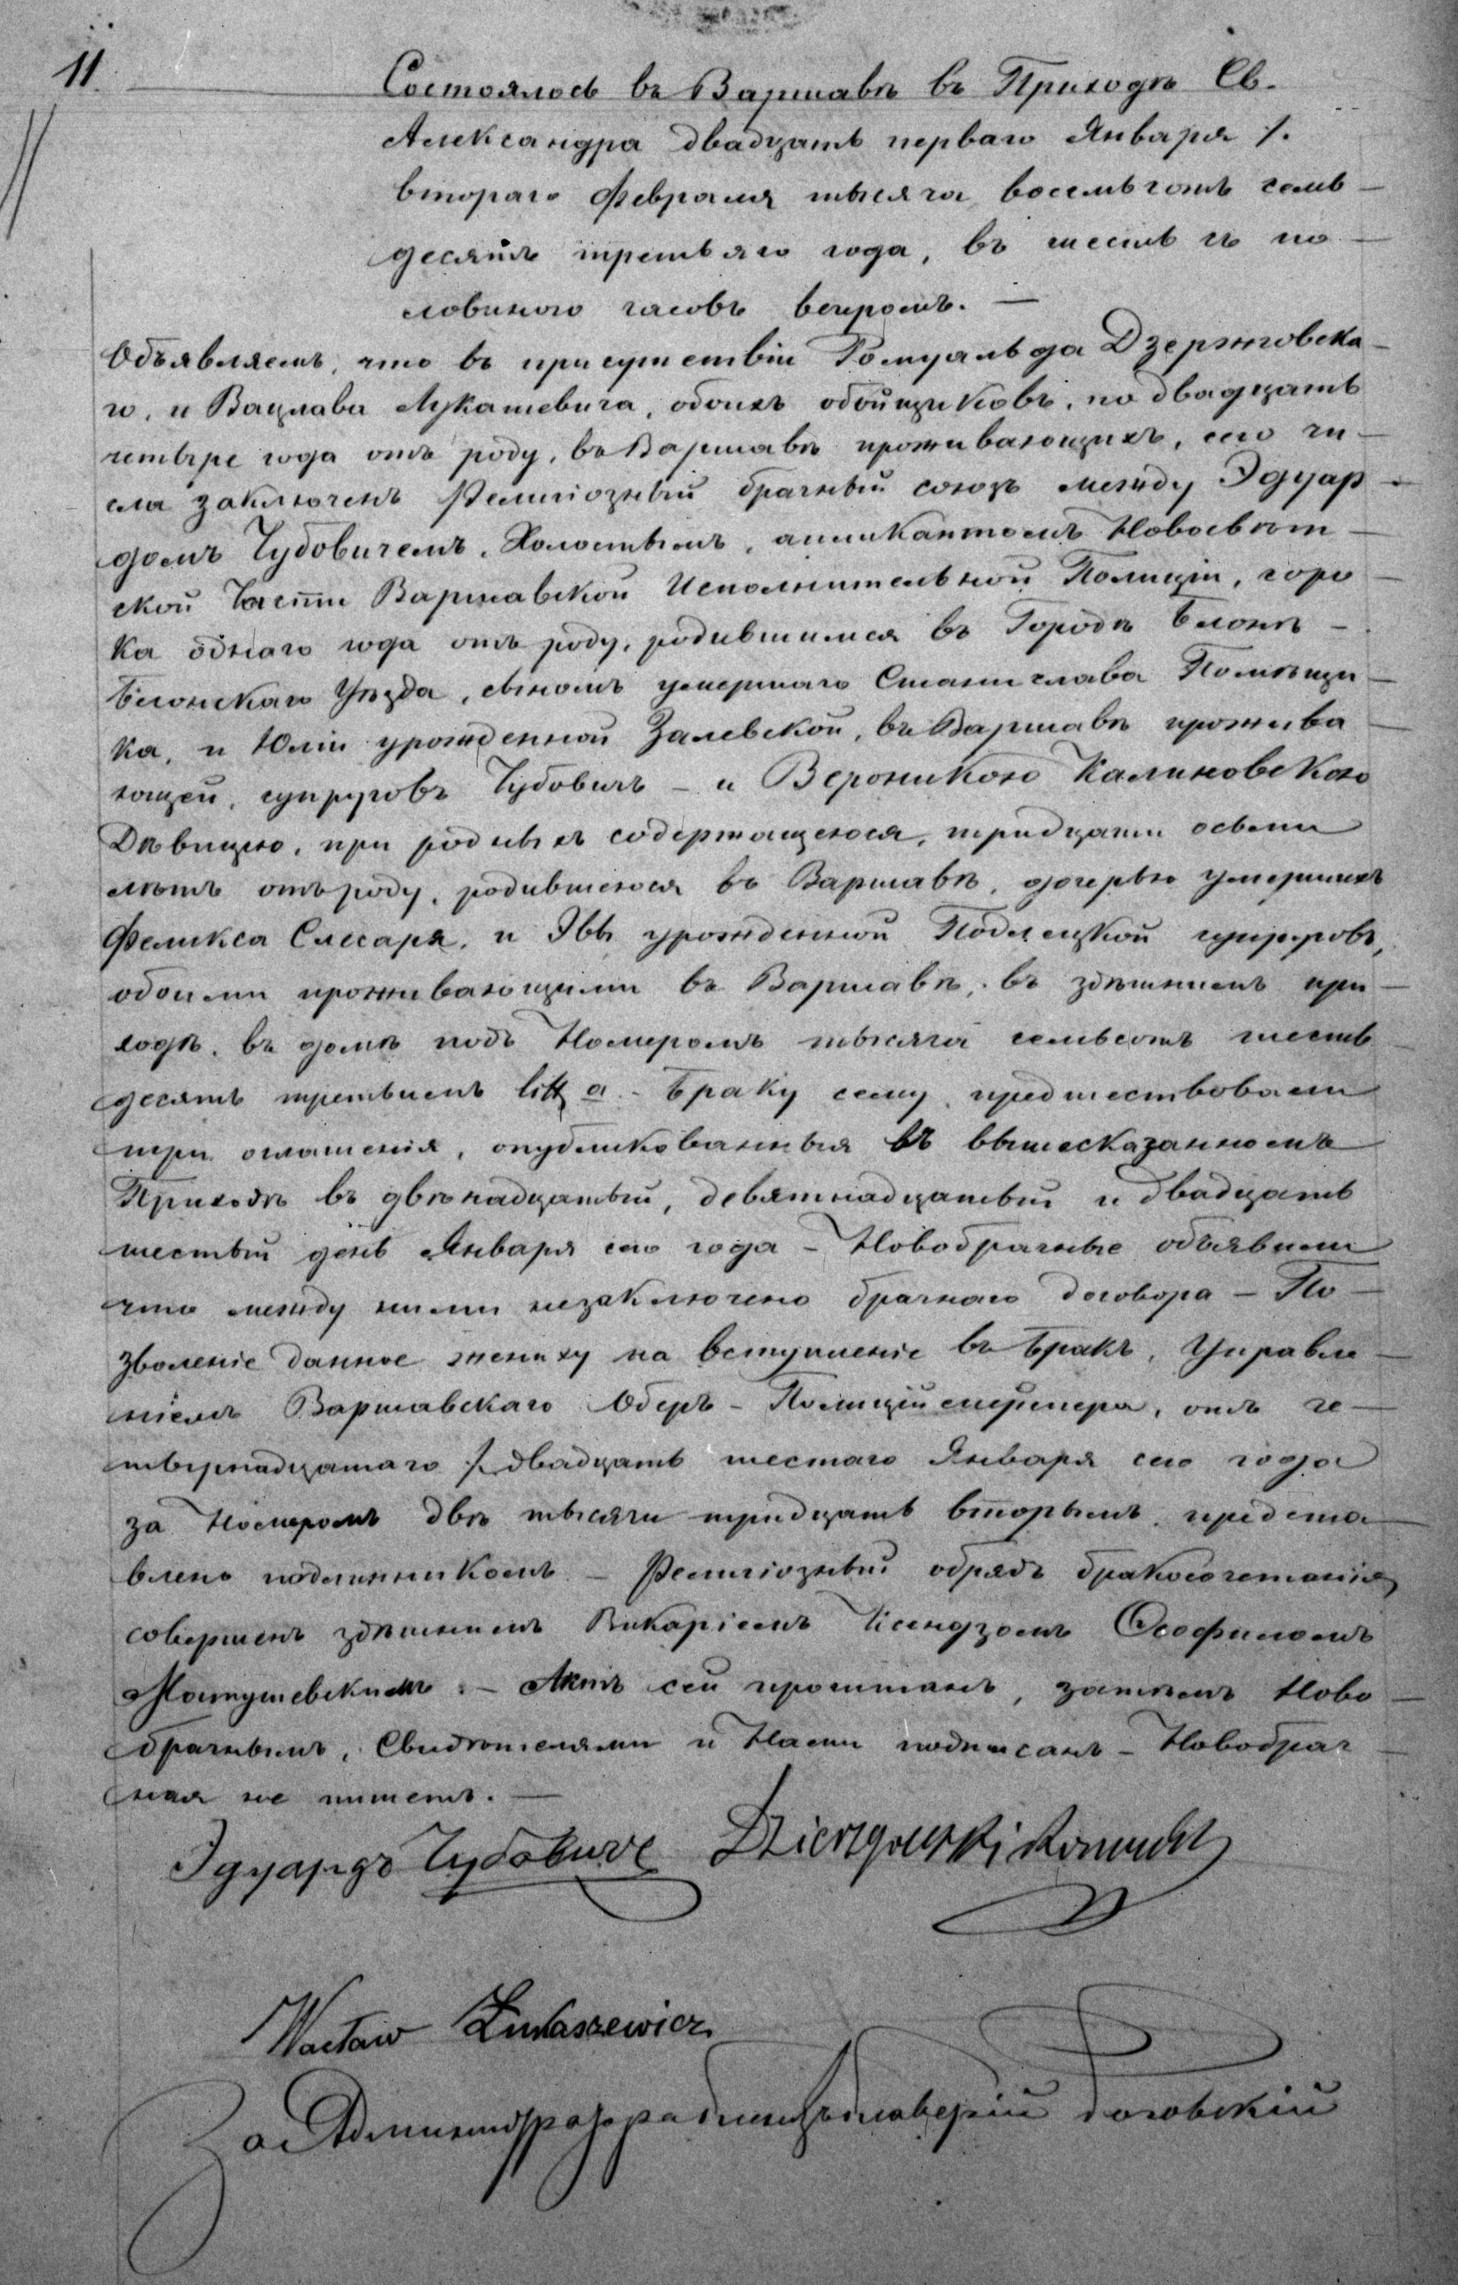 11
Состоялось въ Варшавѣ въ Приходѣ Св.
Александра двадцать перваго Января /.
втораго Февраля тысяча восемьсотъ семь-
десятъ третьяго года, въ шесть съ по-
ловиною часовъ вечеромъ. —
Объявляемъ, что въ присутствіи Ромуальда Дзержговска-
го, и Вацлава Лукашевича, обоихъ обойщиковъ, по двадцать
четыре года отъ роду, въ Варшавѣ проживающихъ, сего чи-
сла заключенъ Религіозный брачный союзъ между Эдуар-
домъ Чубовичемъ, Холостымъ, аппликантомъ Новосвѣт-
ской Части Варшавской Исполнительной Полиціи, соро-
ка однаго года отъ роду, родившимся въ Городѣ Блонѣ -
Блонскаго Уѣзда, сыномъ умершаго Станислава Помѣщи-
ка, и Юліи урожденной Залевской, въ Варшавѣ прожива-
ющей, супруговъ Чубовичъ - и Вероникою Калиновскою
Дѣвицею, при родныхъ содержащеюся, тридцати осьми
лѣтъ отъ роду, родившеюся въ Варшавѣ, дочерью умершихъ
Феликса Слесаря, и Эвы урожденной Подлецкой супруговъ,
обоими проживающими въ Варшавѣ, въ здѣшнемъ при-
ходѣ, въ домѣ подъ Номеромъ тысяча семьсотъ шесть-
десятъ третьимъ litt a - Браку сему предшествовали
три оглашенія, опубликованныя въ вышесказанномъ
Приходѣ въ двѣнадцатый, девятнадцатый и двадцать
шестый день Января сего года - Новобрачные объявили
что между ними незаключено брачнаго договора - По-
зволеніе данное жениху на вступленіе въ Бракъ, Управле-
ніемъ Варшавскаго Оберъ-Полиціймейстера, отъ че-
тырнадцатаго /. двадцать шестаго Января сего года
за Номеромъ двѣ тысячи тридцать вторымъ, предста-
влено подлинникомъ - Религіозный обрядъ бракосочетанія
совершенъ здѣшнимъ Викаріемъ Ксендзомъ Ѳеофиломъ
Матушевскимъ. - Актъ сей прочитанъ, затѣмъ Ново-
брачнымъ, Свидѣтелями и Нами подписанъ - Новобрач-
ная не пишетъ. —
Эдуардъ Чубовичъ Dzierzgowski Romuald
Wacław Łukaszewicz
За Администратора